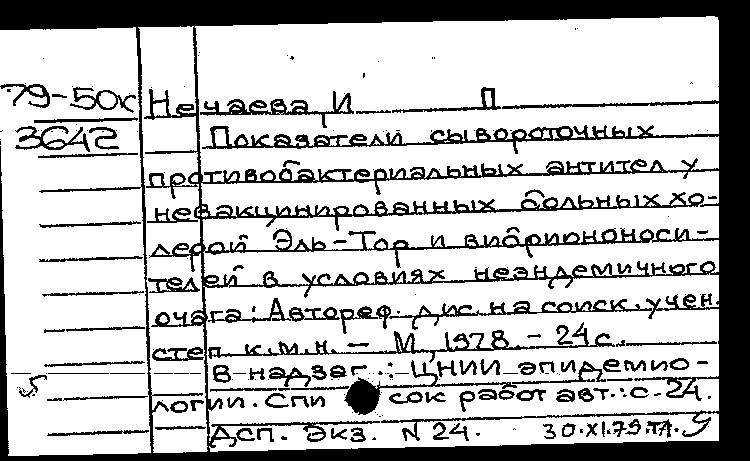 79-50к Нечаева, И П
3642 Показатели сывороточных
противобактериальных антител у
невакцинированных больных хо-
лерой Эль-Тор и вибриононоси-
телей в условиях неэндемичного
очага: Автореф. дис. на соиск. учен.
степ. к.м.н. - М, 1978. - 24 с.
В надзаг.: ЦНИИ эпидемио-
логии. Спи сок работ авт.: с. 24.
ДСП. Экз. N 24. 30.XI.79.